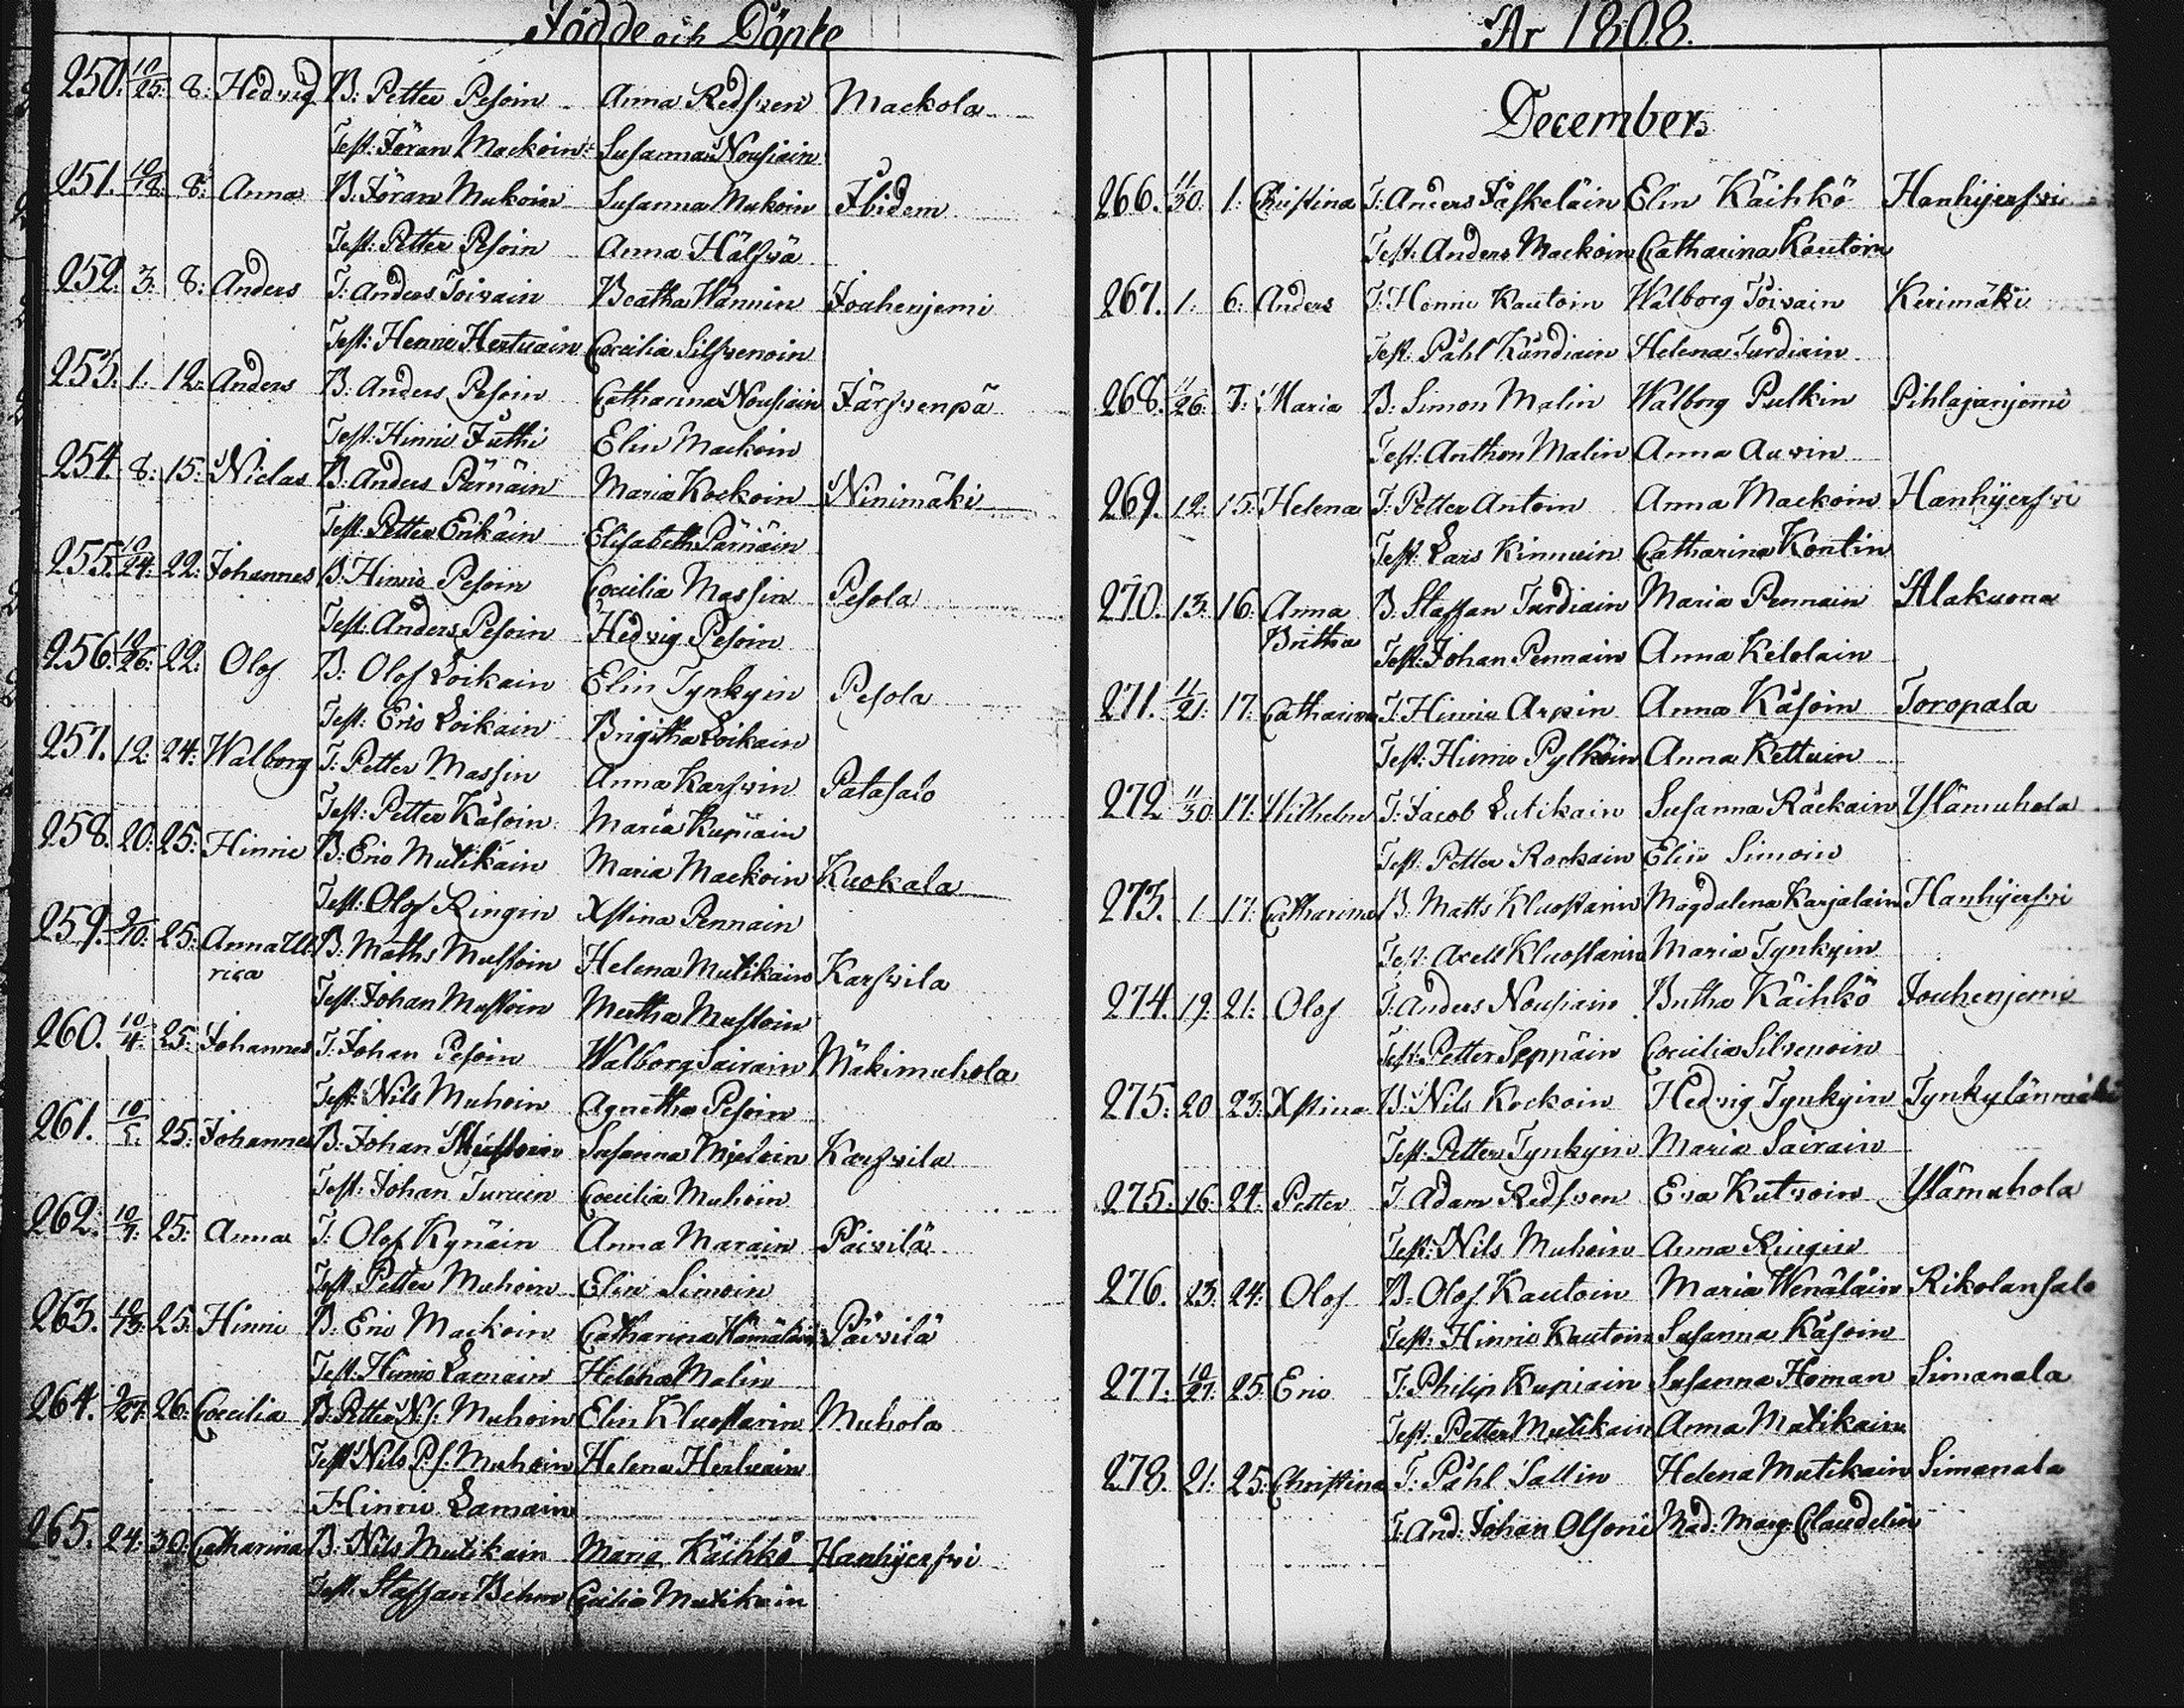 Födde och Döpte
250. 10/25. 8. Hedvig B: Petter Pesoin Anna Redsven Mackola
Test: Jöran Mackoin Susanna Nousiain
251. 10/18. 8. Anna B: Jöran Mukoin Susanna Mukoin Ibidem
Test: Petter Pesoin Anna Hälfvä
252. 3. 8. Anders T: Anders Toivain Beatha Wännin Joahenjemi
Test: Henric Hertuain Coecilia Silfvenoin
253. 1. 12. Anders B: Anders Pesoin Catharina Nousiain Järfvenpä
Test: Hinric Juthi Elin Mackoin
254. 8. 15. Niclas B: Anders Pärnäin Maria Kockoin Ninimäki
Test: Petter Erikäin Elisabeth Pärnäin
255. 10/24. 22. Johannes B: Hinric Pesoin Coecilia Massin Pesola
Test: Anders Pesoin Hedvig Pesoin
256. 10/26. 22. Olof B: Olof Loikain Elin Tynkyin Pesola
Test: Eric Loikain Brigitha Loikain
257. 12. 24. Walborg T: Petter Massin Anna Karfvin Patasalo
Test: Petter Käsoin Maria Kupiain
258. 20. 25. Hinric B: Eric Mutikain Maria Mackoin Kuokala
Test: Olof Ringin Xstina Pennain
259. 9/10. 25. Anna Ul- B: Maths Mustoin Helena Mutikain Karfvila
rica
Test: Johan Mustoin Mertha Mustoin
260. 10/4. 25. Johannes T: Johan Pesoin Walborg Sairain Mäkimuhola
Test: Nils Muhoin Agnetha Pesoin
261. 10/5. 25. Johannes B: Johan Mustoin Susanna Mieloin Karfvila
Test: Johan Turuin Coecilia Muhoin
262. 10/7. 25. Anna T: Olof Kynäin Anna Marain Päivilä
Test Petter Muhoin Elin Simoin
263. 10/13. 25. Hinric B: Eric Mackoin Catharina Hämäläin Päivilä
Test: Hinric Lamain Helena Malin
264. 9/27. 26. Coecilia B: Petter N:s: Muhoin Elin Kluostarin Muhola
Test Nils P:s: Muhoin Helena Herluain
Hinric Lamain
265. 24. 30. Catharina B: Nils Mutikain Maria Käihkö Hanhijerfvi
Test: Staffan Behm Coecilia Mutikain
År 1808.
December.
266. 11/30. 1. Christina T: Anders Jäskeläin Elin Käihkö Hanhijerfvi
Test: Anders Mackoin Catharina Koutoin
267. 1. 6. Anders T: Henric Kautoin Walborg Toivain Kerimäki
Test: Påhl Kändiain Helena Turdiain
268. 11/26. 7. Maria B: Simon Malin Walborg Pulkin Pihlajanjemi
Test: Anthon Malin Anna Auvin
269. 12. 15. Helena T: Petter Antoin Anna Mackoin Hanhijerfvi
Test: Lars Kinnuin Catharina Kontin
270. 13. 16. Anna B: Staffan Turdiain Maria Pennain Alakuona
Britha
Test: Johan Pennain Anna Kelolain
271. 11/21. 17. Catharina T: Hinric Arpin Anna Käsoin Toropala
Test: Hinric Pylköin Anna Kettuin
272. 11/30. 17. Wilhelm T: Jacob Lutikain Susanna Räckain Ylämuhola
Test: Petter Rockain Elin Simoin
273. 1. 17. Catharina B: Matts Kluostarin Magdalena Karjalain Hanhijerfvi
Test: Axell Kluostarin Maria Tynkyin
274. 19. 21. Olof T: Anders Nousiain Britha Käihkö Jouhenjemi
Test: Petter Seppäin Coecilia Silvenoin
275. 20 23. Xstina B: Nils Kockoin Hedvig Tynkyin Tynkylänmäki
Test: Petter Tynkyin Maria Sairain
275. 16. 24. Petter T: Adam Redsven Eva Kutvoin Ylämuhola
Test: Nils Muhoin Anna Ringin
276. 23. 24. Olof B: Olof Kautoin Maria Wenäläin Rikolansalo
Test: Hinric Kautoin Susanna Käsoin
277. 10/27. 25. Eric T: Philip Kupiain Susanna Homan Simanala
Test: Petter Mutikain Anna Mutikain
278. 21. 25. Christina T: Påhl Sallin Helena Mutikain Simanala
T: And: Johan Olsoni Mad: Marg: Claudelin